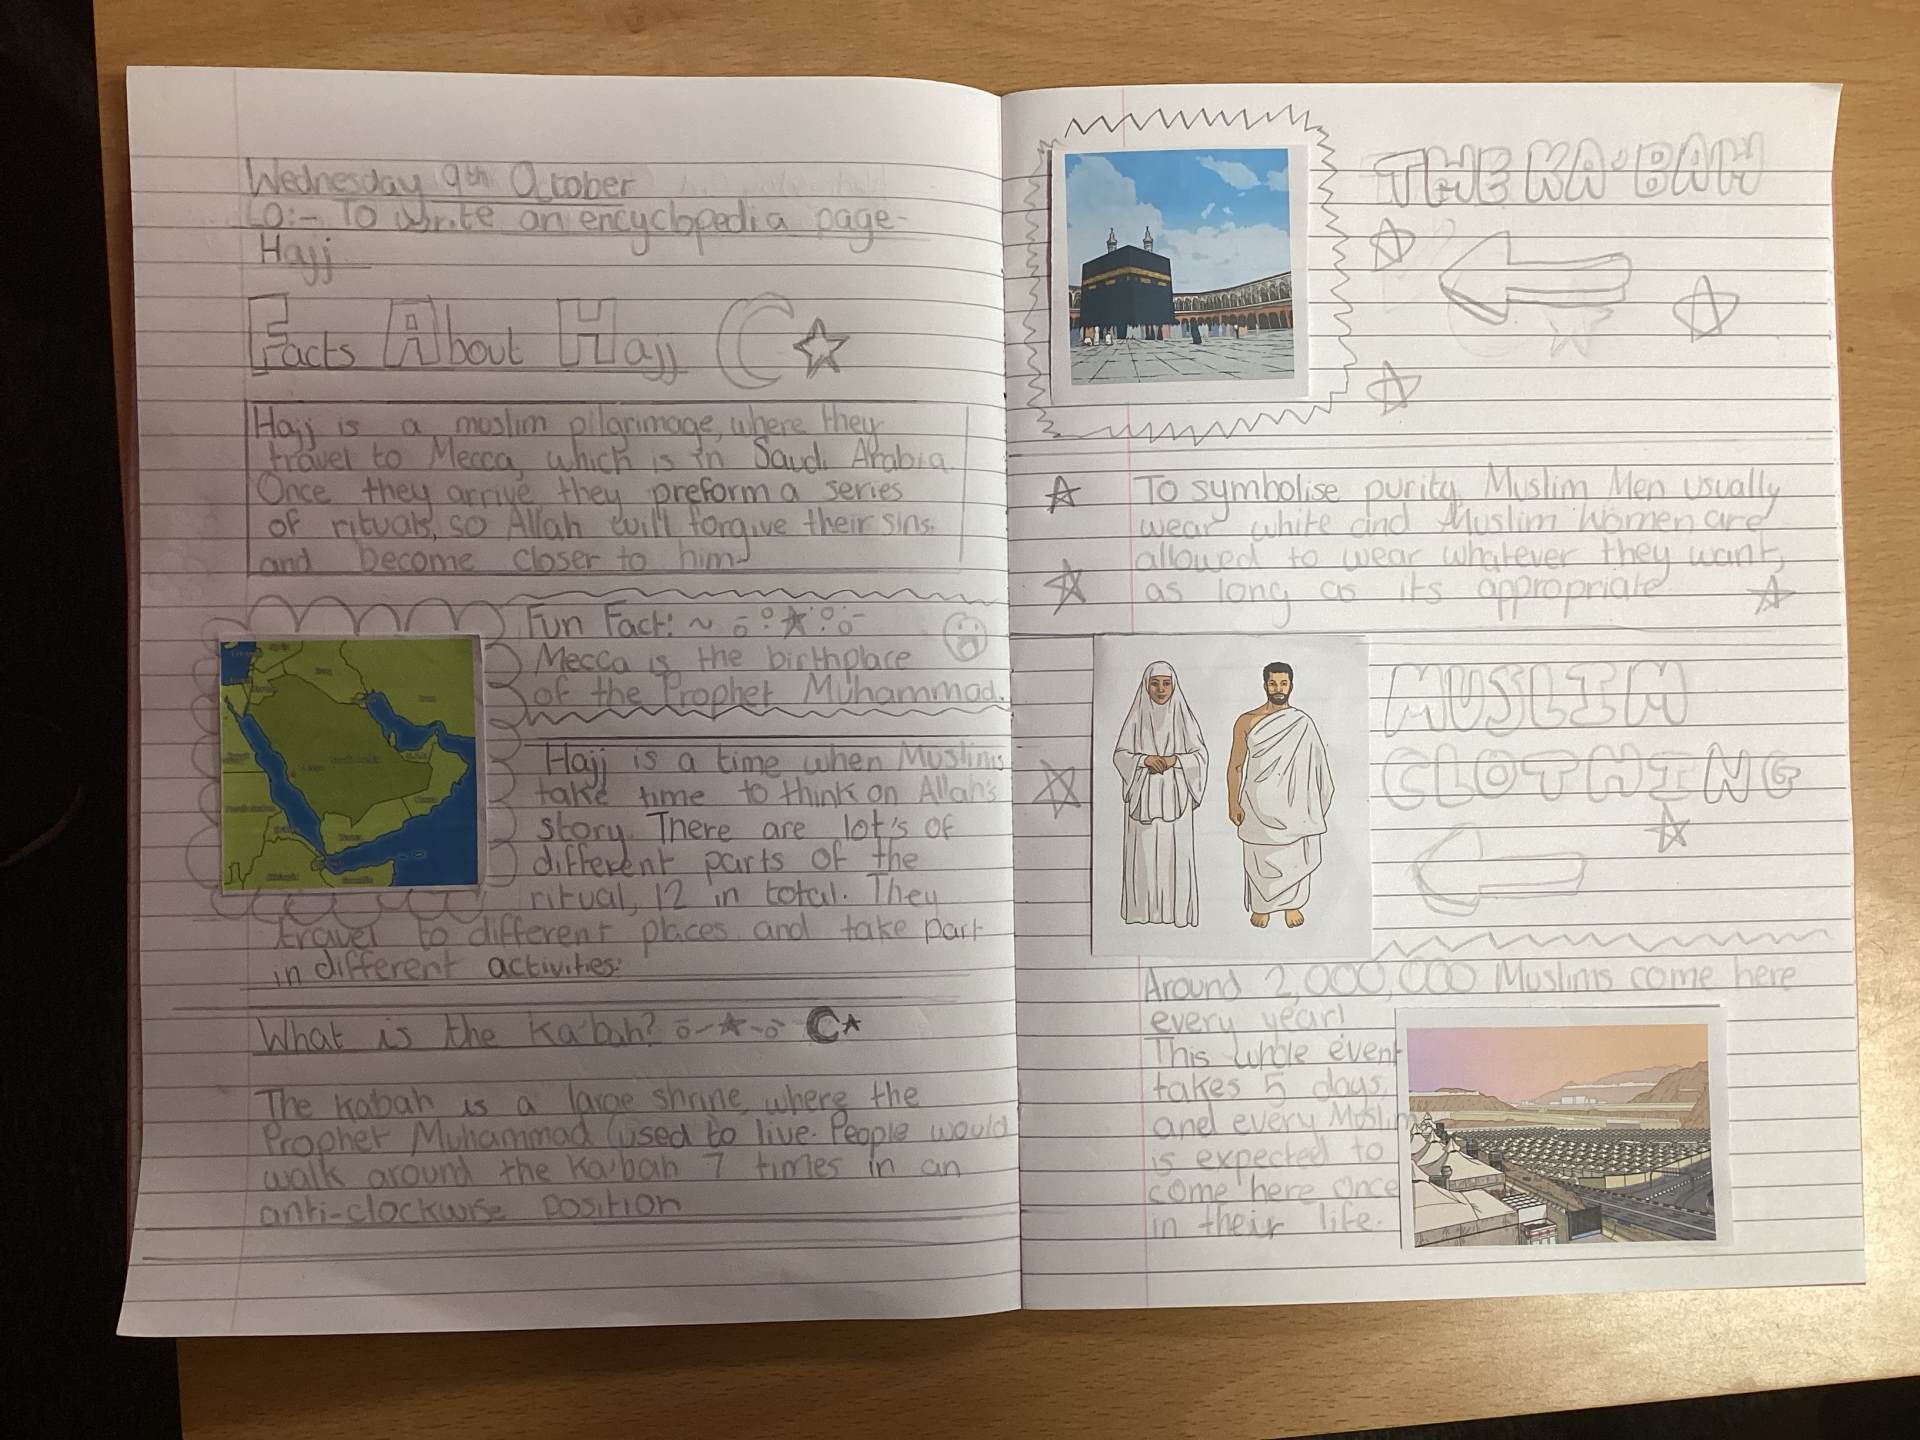 Wednesday 9th October
LO:- To write an encyclopedia page-
Hajj
Facts About Hajj
Hajj is a muslim pilgrimage, where they
travel to Mecca, which is in Saudi Arabia.
Once they arrive they preform a series
of rituals, so Allah will forgive their sins
and become closer to him
Fun Fact! ~
Mecca is the birthplace
of the Prophet Muhammad.
Hajj is a time when Muslims
take time to think on Allah's
story. There are lot's of
different parts of the
ritual, 12 in total. They
travel to different places and take part
in different activities.
What is the Ka'bah?
The kabah is a large shrine, where the
Prophet Muhammad used to live. People would
walk around the Ka'bah 7 times in an
anti-clockwise position
THE KA'BAH
To symbolise purity, Muslim Men usually
wear white and Muslim Women are
allowed to wear whatever they want,
as long as its appropriate.
MUSLIM
CLOTHING
Around 2,000,000 Muslims come here
every year!
This whole event
takes 5 days,
and every Muslim
is expected to
come here once
in their life.